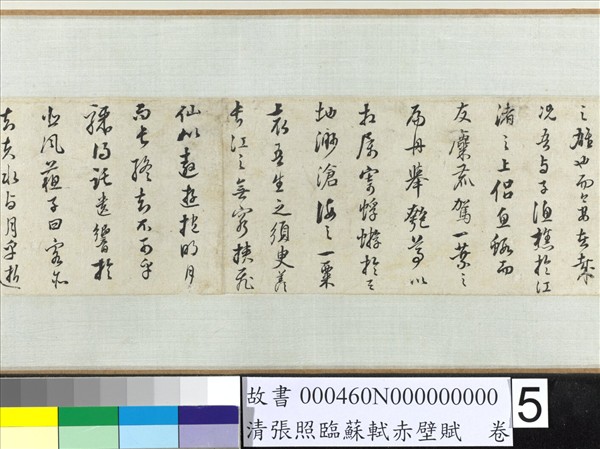 之雄也而今安在哉
況吾與子漁樵於江
渚之上侶魚蝦而
友麋鹿駕一葉之
扁舟舉匏尊以
相屬寄蜉蝣於天
地渺滄海之一粟
哀吾生之須臾羨
長江之無窮挾飛
仙以遨遊抱明月
而長終知不可乎
驟得託遺響於
悲風蘇子曰客亦
知夫水與月乎逝
故書 000460N000000000
清張照臨蘇軾赤壁賦 卷
5